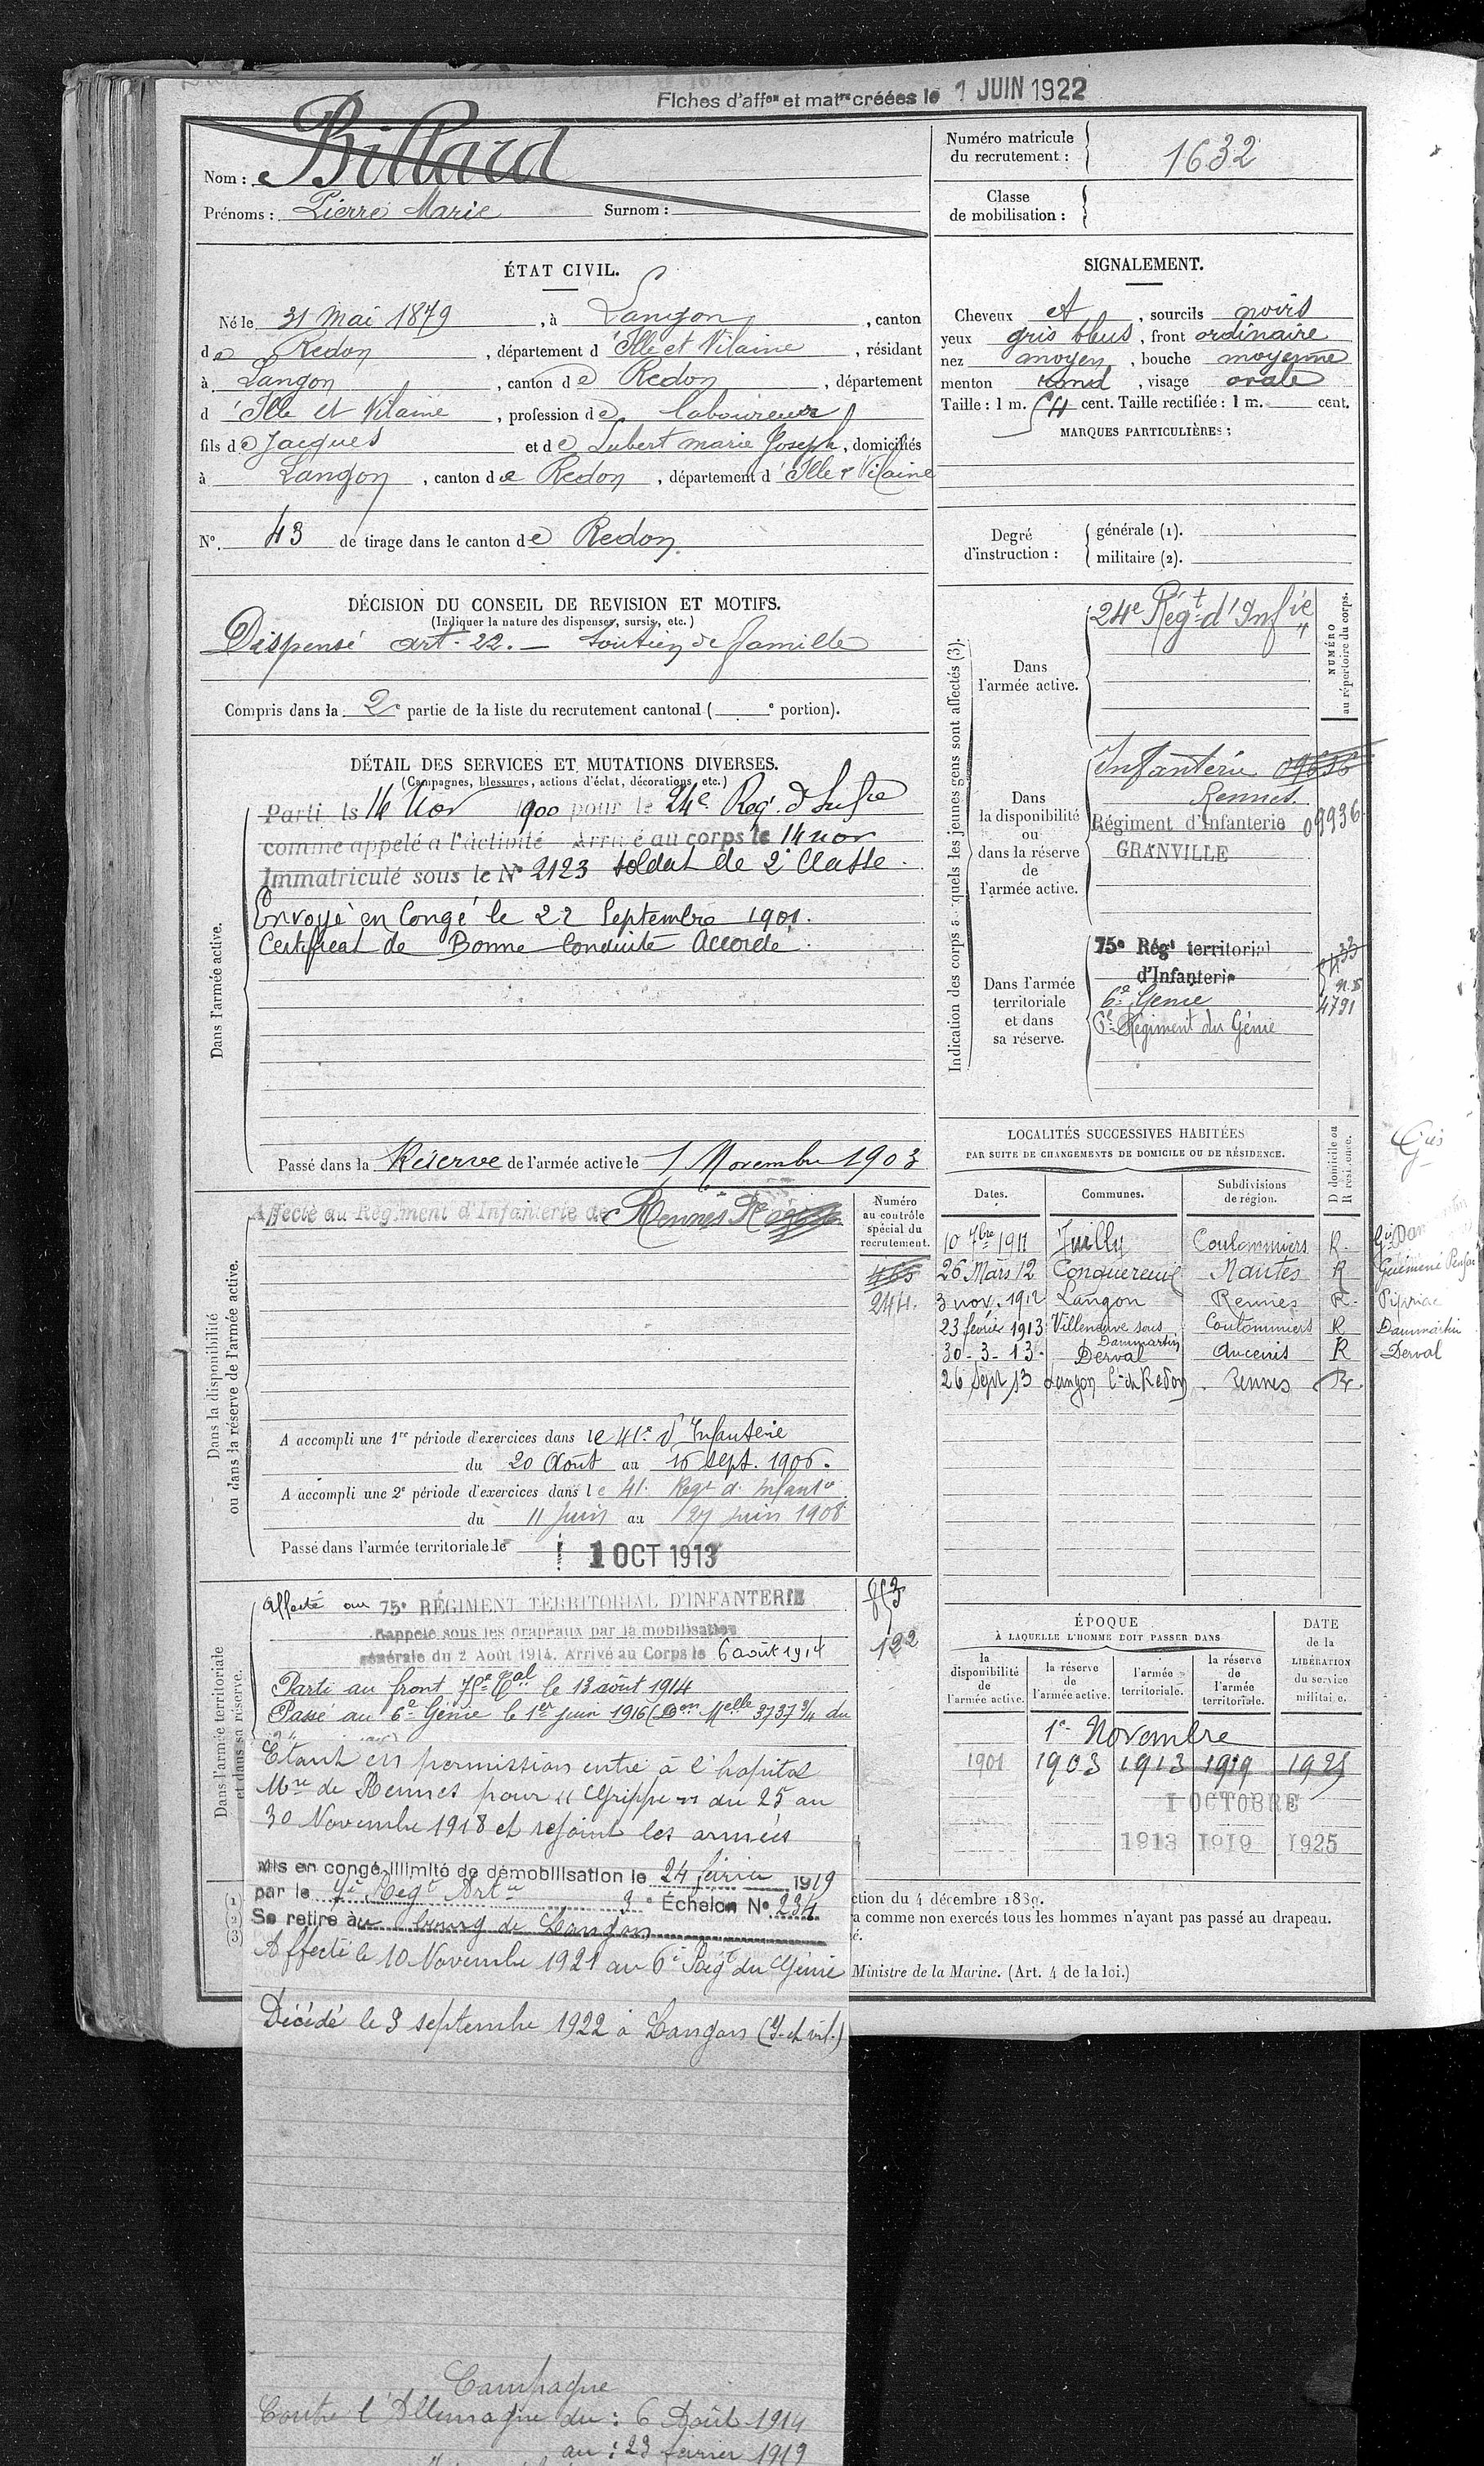 Fiches d'affon et matre créées le 1 JUIN 1922
Nom : Billard
Prénoms : Pierre Marie Surnom :
Numéro matricule du recrutement : 1632
Classe de mobilisation :
ÉTAT CIVIL.
Né le 31 mai 1879, à Langon, canton
de Redon, département d'Ille et Vilaine, résidant
à Langon, canton de Redon, département
d'Ille et Vilaine, profession de laboureur
fils de Jacques et de Lubert marie Joseph, domiciliés
à Langon, canton de Redon, département d'Ille & Vilaine
N° 43 de tirage dans le canton de Redon.
SIGNALEMENT.
Cheveux et, sourcils noirs
yeux gris bleus, front ordinaire
nez moyen, bouche moyenne
menton rond, visage ovale
Taille : 1 m. 64 cent. Taille rectifiée : 1 m. cent.
MARQUES PARTICULIÈRES :
Degré d'instruction : générale (1).
militaire (2).
DÉCISION DU CONSEIL DE REVISION ET MOTIFS.
(Indiquer la nature des dispenses, sursis, etc.)
Dispensé art. 22. — Soutien de famille
Compris dans la 2e partie de la liste du recrutement cantonal ( e portion).
DÉTAIL DES SERVICES ET MUTATIONS DIVERSES.
(Campagnes, blessures, actions d'éclat, décorations, etc.)
Dans l'armée active.
Parti le 14 Nov 1900 pour le 24e Reg. d'Infie
comme appelé à l'activité Arrivé au corps le 14 nov
Immatriculé sous le N° 2123 soldat de 2e Classe.
Envoyé en Congé le 22 Septembre 1901.
Certificat de Bonne Conduite Accordé.
Passé dans la Réserve de l'armée active le 1 Novembre 1903
Indication des corps auxquels les jeunes gens sont affectés (3).
NUMÉRO au répertoire du corps.
Dans l'armée active.
24e Régt d'Infie
Dans la disponibilité ou dans la réserve de l'armée active.
Infanterie 09636
Rennes.
Régiment d'Infanterie 09936
GRANVILLE
Dans l'armée territoriale et dans sa réserve.
75e Régt territorial
d'Infanterie
6e Génie
4791
6e Régiment du Génie
LOCALITÉS SUCCESSIVES HABITÉES
PAR SUITE DE CHANGEMENTS DE DOMICILE OU DE RÉSIDENCE.
Dates. Communes. Subdivisions de région. D domicile ou R résidence.
10 7bre 1911 Juilly Coulommiers R.
26 Mars 12 Conquereuil Nantes R Guémené Penfao
3 nov. 1912 Langon Rennes R. Pipriac
23 février 1913 Villeneuve sous Dammartin Coulommiers R Dammartin
30-3-13. Derval Ancenis R Derval
26 Sept 13 Langon Con de Redon Rennes R.
Dans la disponibilité ou dans la réserve de l'armée active.
Affecté au Régiment d'Infanterie de Rennes
Numéro au contrôle spécial du recrutement.
465
244.
A accompli une 1re période d'exercices dans le 41e d'Infanterie
du 20 Août au 16 sept. 1906.
A accompli une 2e période d'exercices dans le 41. Regt d. Infant
du 11 Juin au 27 juin 1908
Passé dans l'armée territoriale le 1 OCT 1913
Dans l'armée territoriale et dans sa réserve.
Affecté au 75e RÉGIMENT TERRITORIAL D'INFANTERIE
Rappelé sous les drapeaux par la mobilisation
générale du 2 Août 1914. Arrivé au Corps le 6 août 1914
122
Parti au front 75e Tal le 13 août 1914
Passé au 6e Génie le 1er juin 1916 (Don Melle 3737 3/4 du
Etant en permission entré à l'hopital
Mre de Rennes pour "Grippe" du 25 au
30 Novembre 1918 et rejoint les armées
Mis en congé illimité de démobilisation le 24 février 1919
par le 7e Regt Artie 3e Échelon N° 234
Se retire au bourg de Langon
Affecté le 10 Novembre 1921 au 6e Regt du Génie
Décédé le 3 septembre 1922 à Langon (I. et vil.)
ÉPOQUE
À LAQUELLE L'HOMME DOIT PASSER DANS
la disponibilité de l'armée active. la réserve de l'armée active. l'armée territoriale. la réserve de l'armée territoriale. DATE de la LIBÉRATION du service militaire.
1er Novembre
1901 1903 1913 1919 1925
1 OCTOBRE
1913 1919 1925
(1)
(2)
(3)
ction du 4 décembre 1889.
a comme non exercés tous les hommes n'ayant pas passé au drapeau.
é.
Ministre de la Marine. (Art. 4 de la loi.)
Campagne
Contre l'Allemagne du : 6 Août 1914
au : 23 fevrier 1919